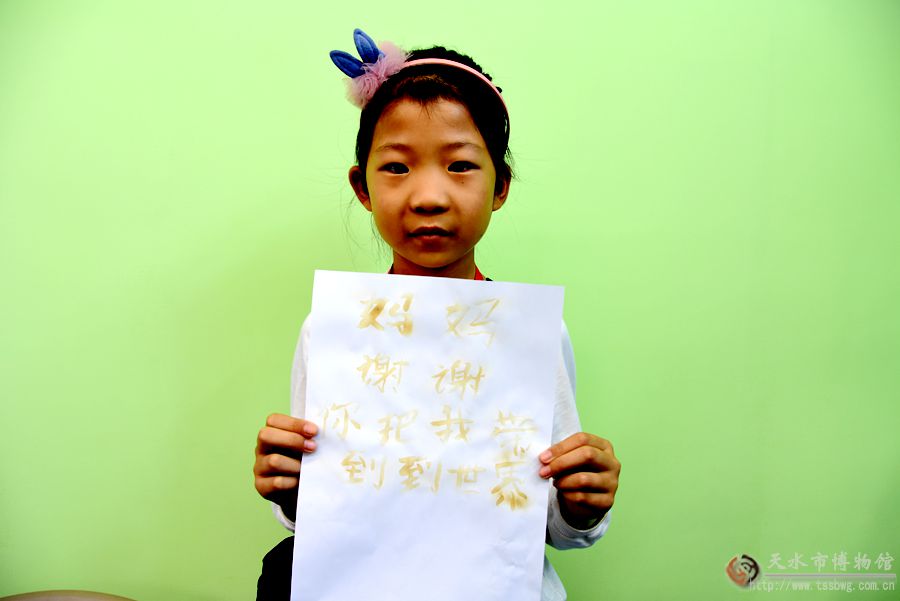 妈妈
谢谢
你把我带
到到世界
天水市博物馆
http://www.tssbwg.com.cn